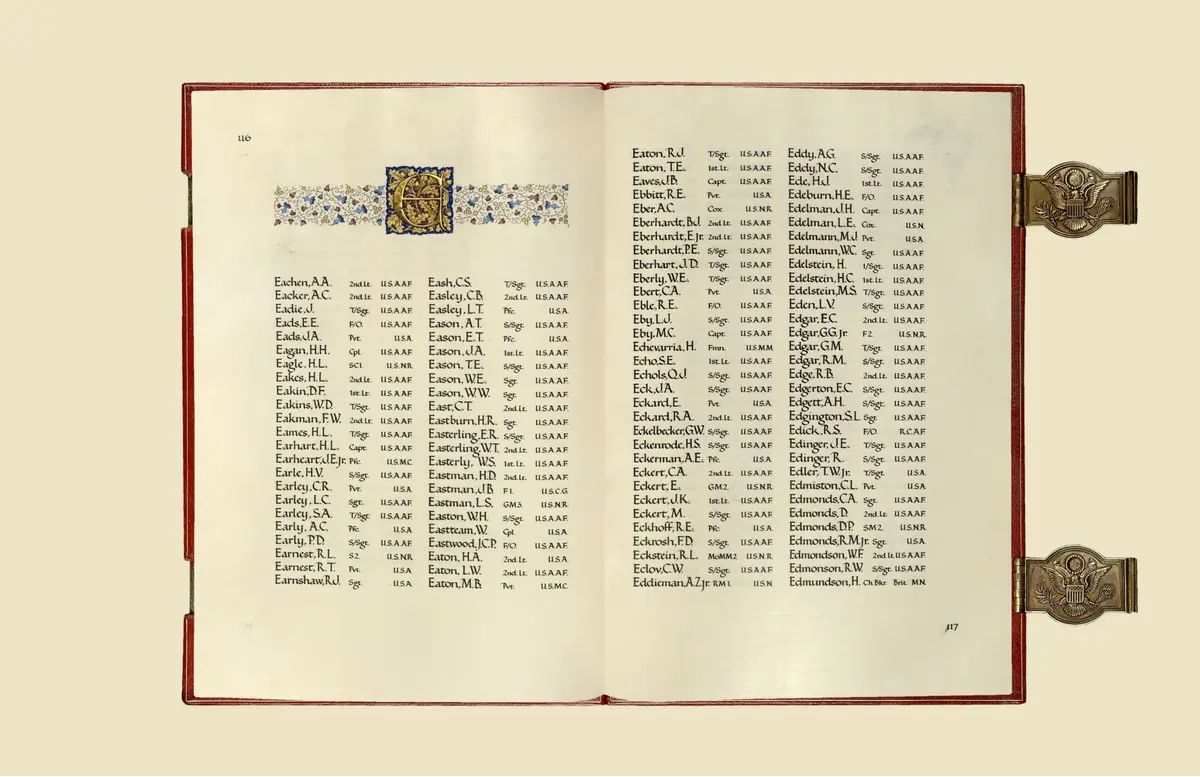 116
E
Eachen, A.A. 2nd.Lt. U.S.A.A.F.
Eacker, A.C. 2nd.Lt. U.S.A.A.F.
Eadie, J. T/Sgt. U.S.A.A.F.
Eads, E.E. F/O. U.S.A.A.F.
Eads, J.A. Pvt. U.S.A.
Eagan, H.H. Cpl. U.S.A.A.F.
Eagle, H.L. SC1. U.S.N.R.
Eakes, H.L. 2nd.Lt. U.S.A.A.F.
Eakin, D.F. 1st.Lt. U.S.A.A.F.
Eakins, W.D. T/Sgt. U.S.A.A.F.
Eakman, F.W. 2nd.Lt. U.S.A.A.F.
Eames, H.L. T/Sgt. U.S.A.A.F.
Earhart, H.L. Capt. U.S.A.A.F.
Earheart, J.E. Jr. Pfc. U.S.M.C.
Earle, H.V. S/Sgt. U.S.A.A.F.
Earley, C.R. Pvt. U.S.A.
Earley, L.C. Sgt. U.S.A.A.F.
Earley, S.A. T/Sgt. U.S.A.A.F.
Early, A.C. Pfc. U.S.A.
Early, P.D. S/Sgt. U.S.A.A.F.
Earnest, R.L. S2. U.S.N.R.
Earnest, R.T. Pvt. U.S.A.
Earnshaw, R.J. Sgt. U.S.A.
Eash, C.S. T/Sgt. U.S.A.A.F.
Easley, C.B. 2nd.Lt. U.S.A.A.F.
Easley, L.T. Pfc. U.S.A.
Eason, A.T. S/Sgt. U.S.A.A.F.
Eason, E.T. Pfc. U.S.A.
Eason, J.A. 1st.Lt. U.S.A.A.F.
Eason, T.E. S/Sgt. U.S.A.A.F.
Eason, W.E. Sgt. U.S.A.A.F.
Eason, W.W. Sgt. U.S.A.A.F.
East, C.T. 2nd.Lt. U.S.A.A.F.
Eastburn, H.R. Sgt. U.S.A.A.F.
Easterling, E.R. S/Sgt. U.S.A.A.F.
Easterling, W.T. 2nd.Lt. U.S.A.A.F.
Easterly, W.S. 1st.Lt. U.S.A.A.F.
Eastman, H.D. 2nd.Lt. U.S.A.A.F.
Eastman, J.B. F1. U.S.C.G.
Eastman, L.S. GM3. U.S.N.R.
Easton, W.H. S/Sgt. U.S.A.A.F.
Eastteam, W. Cpl. U.S.A.
Eastwood, J.C.P. F/O. U.S.A.A.F.
Eaton, H.A. 2nd.Lt. U.S.A.
Eaton, L.W. 2nd.Lt. U.S.A.A.F.
Eaton, M.B. Pvt. U.S.M.C.
Eaton, R.J. T/Sgt. U.S.A.A.F.
Eaton, T.E. 1st.Lt. U.S.A.A.F.
Eaves, J.B. Capt. U.S.A.A.F.
Ebbitt, R.E. Pvt. U.S.A.
Eber, A.C. Cox. U.S.N.R.
Eberhardt, B.J. 2nd.Lt. U.S.A.A.F.
Eberhardt, E. Jr. 2nd.Lt. U.S.A.A.F.
Eberhardt, P.E. S/Sgt. U.S.A.A.F.
Eberhart, J.D. T/Sgt. U.S.A.A.F.
Eberly, W.E. T/Sgt. U.S.A.A.F.
Ebert, C.A. Pvt. U.S.A.
Eble, R.E. F/O. U.S.A.A.F.
Eby, L.J. S/Sgt. U.S.A.A.F.
Eby, M.C. Capt. U.S.A.A.F.
Echevarria, H. Fmn. U.S.M.M.
Echo, S.E. 1st.Lt. U.S.A.A.F.
Echols, Q.J. S/Sgt. U.S.A.A.F.
Eck, J.A. S/Sgt. U.S.A.A.F.
Eckard, E. Pvt. U.S.A.
Eckard, R.A. 2nd.Lt. U.S.A.A.F.
Eckelbecker, G.W. S/Sgt. U.S.A.A.F.
Eckenrode, H.S. S/Sgt. U.S.A.A.F.
Eckerman, A.E. Pfc. U.S.A.
Eckert, C.A. 2nd.Lt. U.S.A.A.F.
Eckert, E. GM2. U.S.N.R.
Eckert, J.K. 1st.Lt. U.S.A.A.F.
Eckert, M. S/Sgt. U.S.A.A.F.
Eckhoff, R.E. Pfc. U.S.A.
Eckrosh, F.D. S/Sgt. U.S.A.A.F.
Eckstein, R.L. MoMM2. U.S.N.R.
Eclov, C.W. S/Sgt. U.S.A.A.F.
Eddieman, A.Z. Jr. RM1. U.S.N.
Eddy, A.G. S/Sgt. U.S.A.A.F.
Eddy, N.C. S/Sgt. U.S.A.A.F.
Ede, H.J. 1st.Lt. U.S.A.A.F.
Edeburn, H.E. F/O. U.S.A.A.F.
Edelman, J.H. Capt. U.S.A.A.F.
Edelman, L.E. Cox. U.S.N.
Edelmann, M.J. Pvt. U.S.A.
Edelmann, W.C. Sgt. U.S.A.A.F.
Edelstein, H. T/Sgt. U.S.A.A.F.
Edelstein, H.C. 1st.Lt. U.S.A.A.F.
Edelstein, M.S. T/Sgt. U.S.A.A.F.
Eden, L.V. S/Sgt. U.S.A.A.F.
Edgar, E.C. 2nd.Lt. U.S.A.A.F.
Edgar, G.G. Jr. F2. U.S.N.R.
Edgar, G.M. T/Sgt. U.S.A.A.F.
Edgar, R.M. S/Sgt. U.S.A.A.F.
Edge, R.B. 2nd.Lt. U.S.A.A.F.
Edgerton, E.C. S/Sgt. U.S.A.A.F.
Edgett, A.H. S/Sgt. U.S.A.A.F.
Edgington, S.L. Sgt. U.S.A.A.F.
Edick, R.S. F/O. R.C.A.F.
Edinger, J.E. T/Sgt. U.S.A.A.F.
Edinger, R. S/Sgt. U.S.A.A.F.
Edler, T.W. Jr. T/Sgt. U.S.A.
Edmiston, C.L. Pvt. U.S.A.
Edmonds, C.A. Sgt. U.S.A.A.F.
Edmonds, D. 2nd.Lt. U.S.A.A.F.
Edmonds, D.P. SM2. U.S.N.R.
Edmonds, R.M. Jr. Sgt. U.S.A.
Edmondson, W.F. 2nd.Lt. U.S.A.A.F.
Edmonson, R.W. S/Sgt. U.S.A.A.F.
Edmundson, H. Ch.Bkr. Brit. M.N.
117